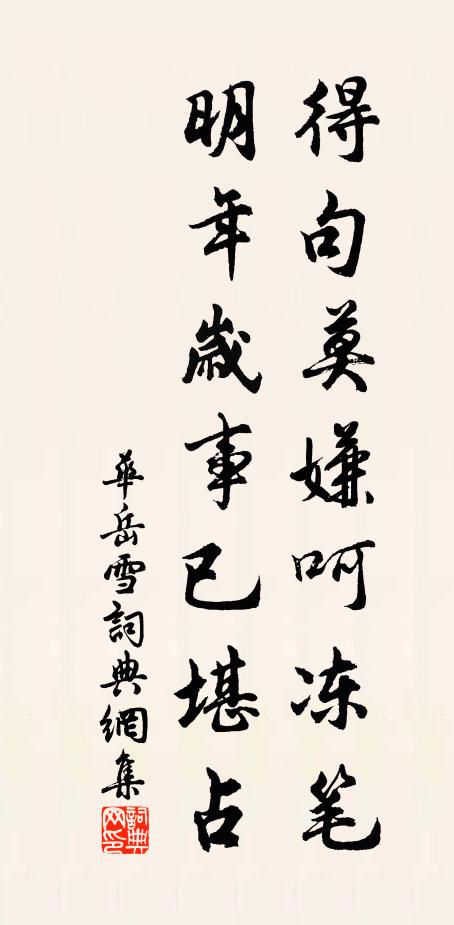 得句莫嫌呵冻笔
明年歳事已堪占
华岳雪詞典網集
詞典网印